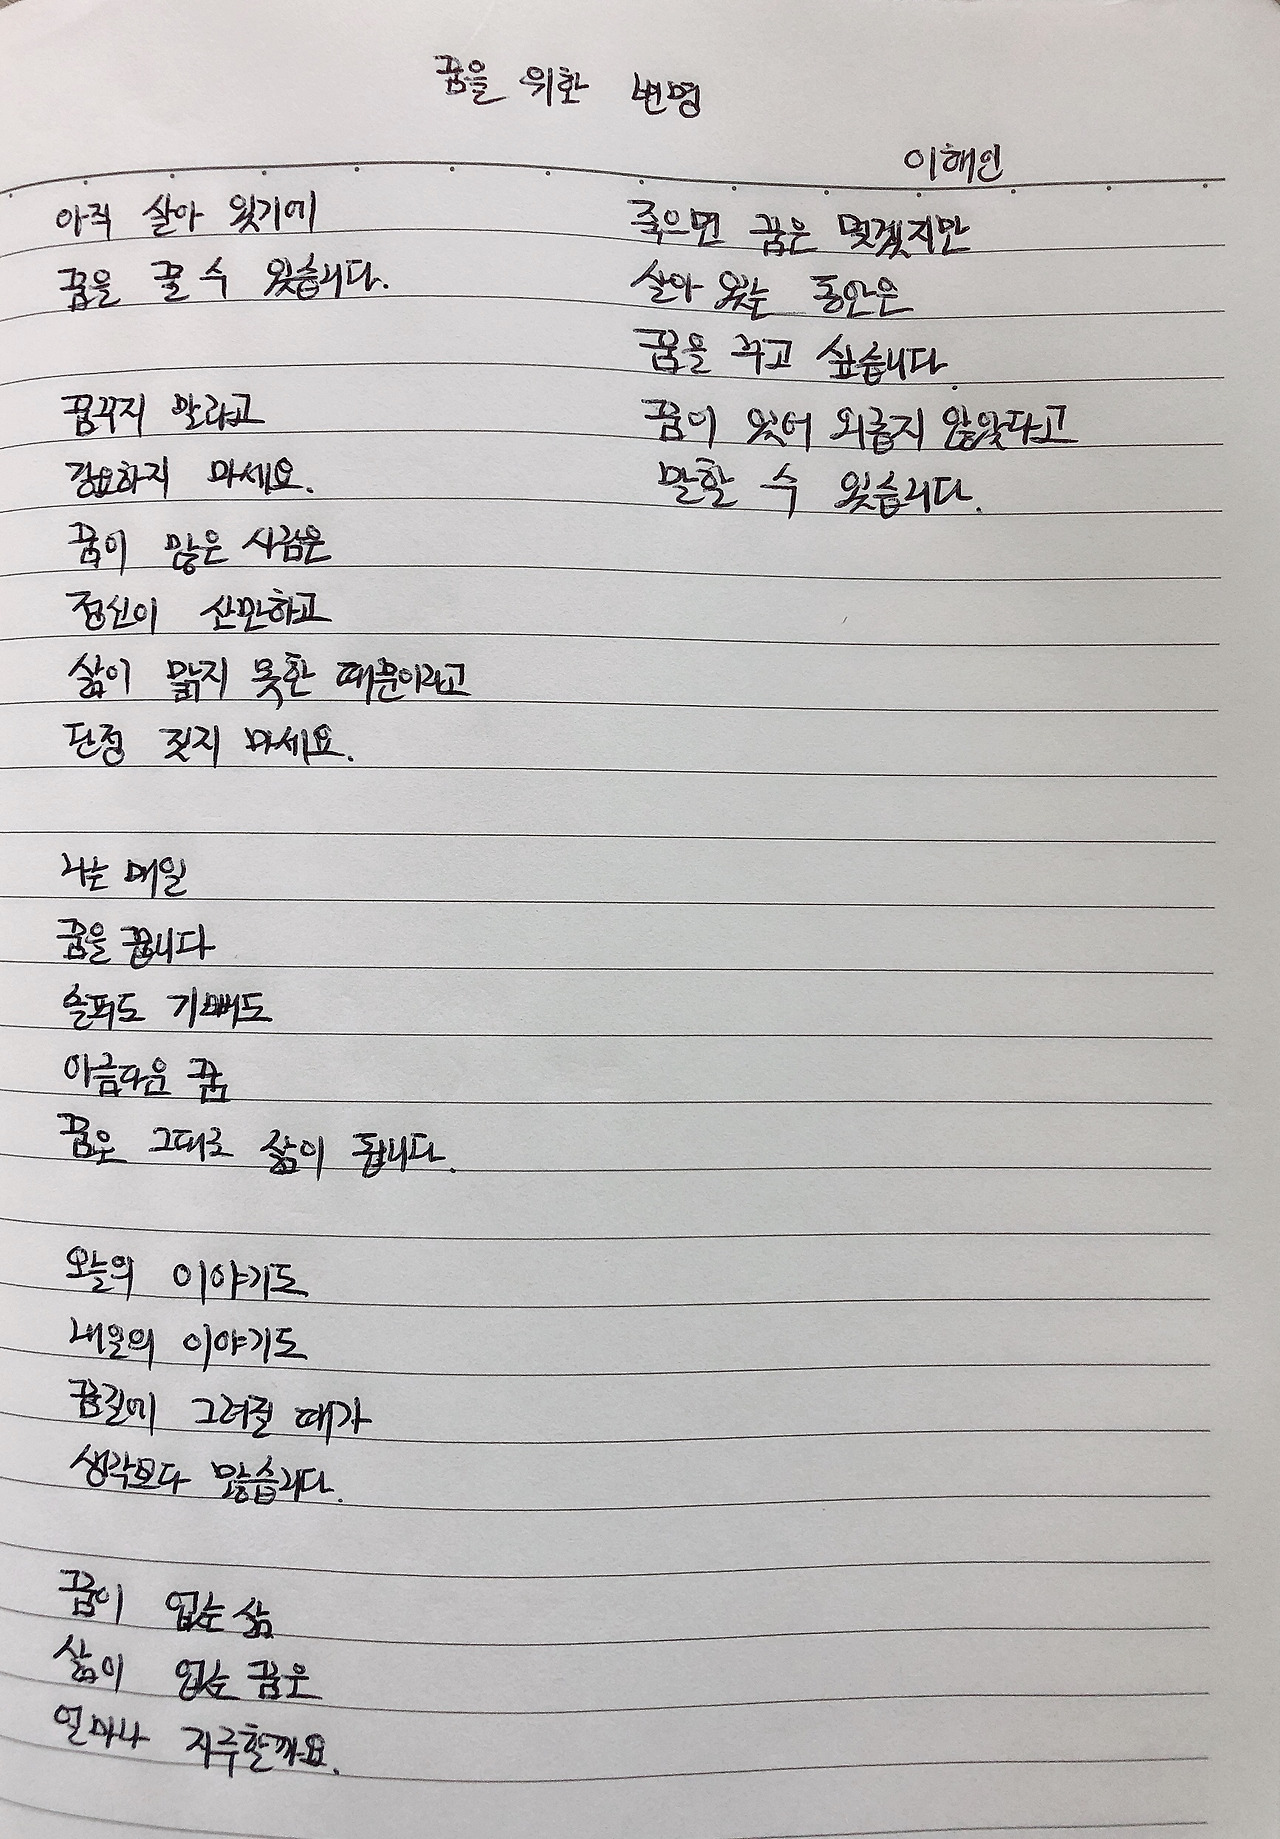 꿈을 위한 변명
이해인
아직 살아 있기에
꿈을 꿀 수 있습니다.
꿈꾸지 말라고
강요하지 마세요.
꿈이 많은 사람은
정신이 산만하고
삶이 맑지 못한 때문이라고
단정 짓지 마세요.
나는 매일
꿈을 꿉니다
슬퍼도 기뻐도
아름다운 꿈
꿈은 그대로 삶이 됩니다.
오늘의 이야기도
내일의 이야기도
꿈길에 그려질 때가
생각보다 많습니다.
꿈이 없는 삶
삶이 없는 꿈은
얼마나 지루할까요.
죽으면 꿈은 멎겠지만
살아 있는 동안은
꿈을 꾸고 싶습니다.
꿈이 있어 외롭지 않았다고
말할 수 있습니다.